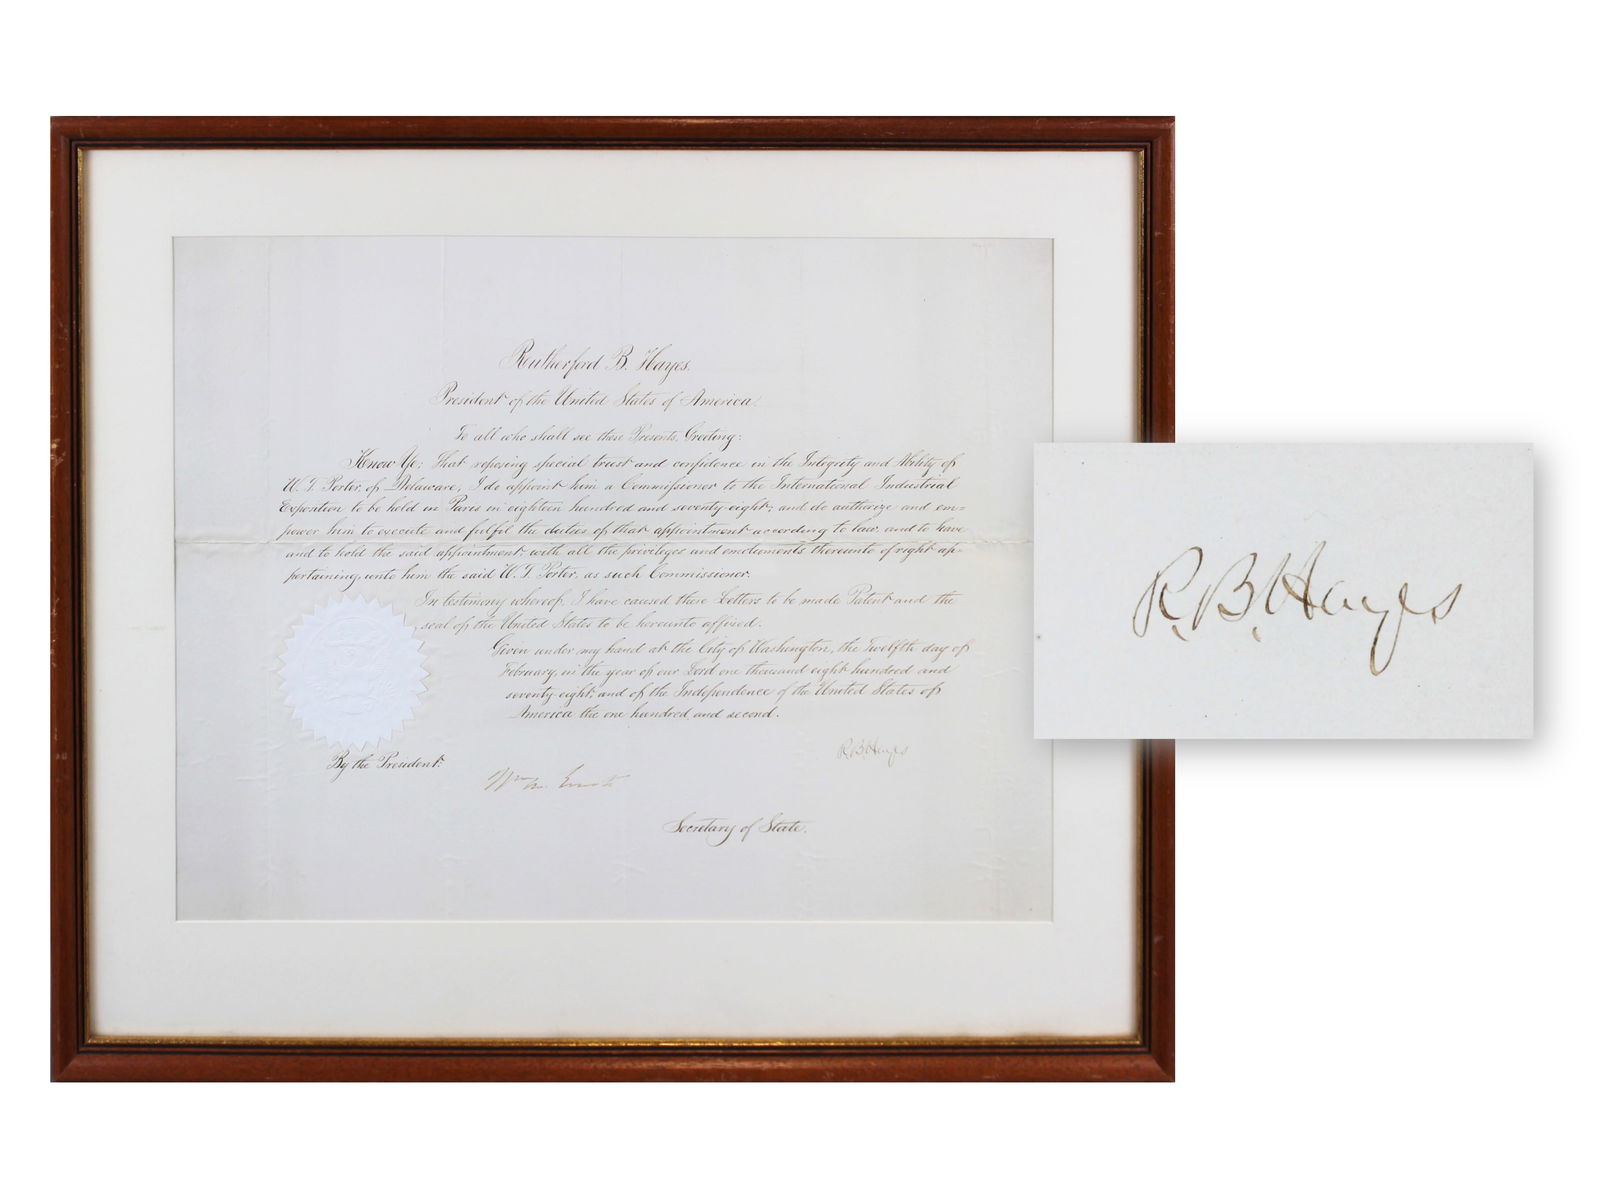 Rutherford B. Hayes.
President of the United States of America.
To all who shall see these Presents, Greeting:
Know Ye; That reposing special trust and confidence in the Integrity and Ability of
W. T. Porter, of Delaware, I do appoint him a Commissioner to the International Industrial
Exposition to be held in Paris in eighteen hundred and seventy-eight; and do authorize and em=
power him to execute and fulfil the duties of that appointment according to law, and to have
and to hold the said appointment, with all the privileges and emoluments thereunto of right ap=
pertaining, unto him the said W. T. Porter, as such Commissioner.
In testimony whereof, I have caused these Letters to be made Patent and the
seal of the United States to be hereunto affixed.
Given under my hand at the City of Washington, the Twelfth day of
February, in the year of our Lord one thousand eight hundred and
seventy-eight; and of the Independence of the United States of
America the one hundred and second.
R. B. Hayes
By the President:
Wm M. Evarts
Secretary of State.
R. B. Hayes